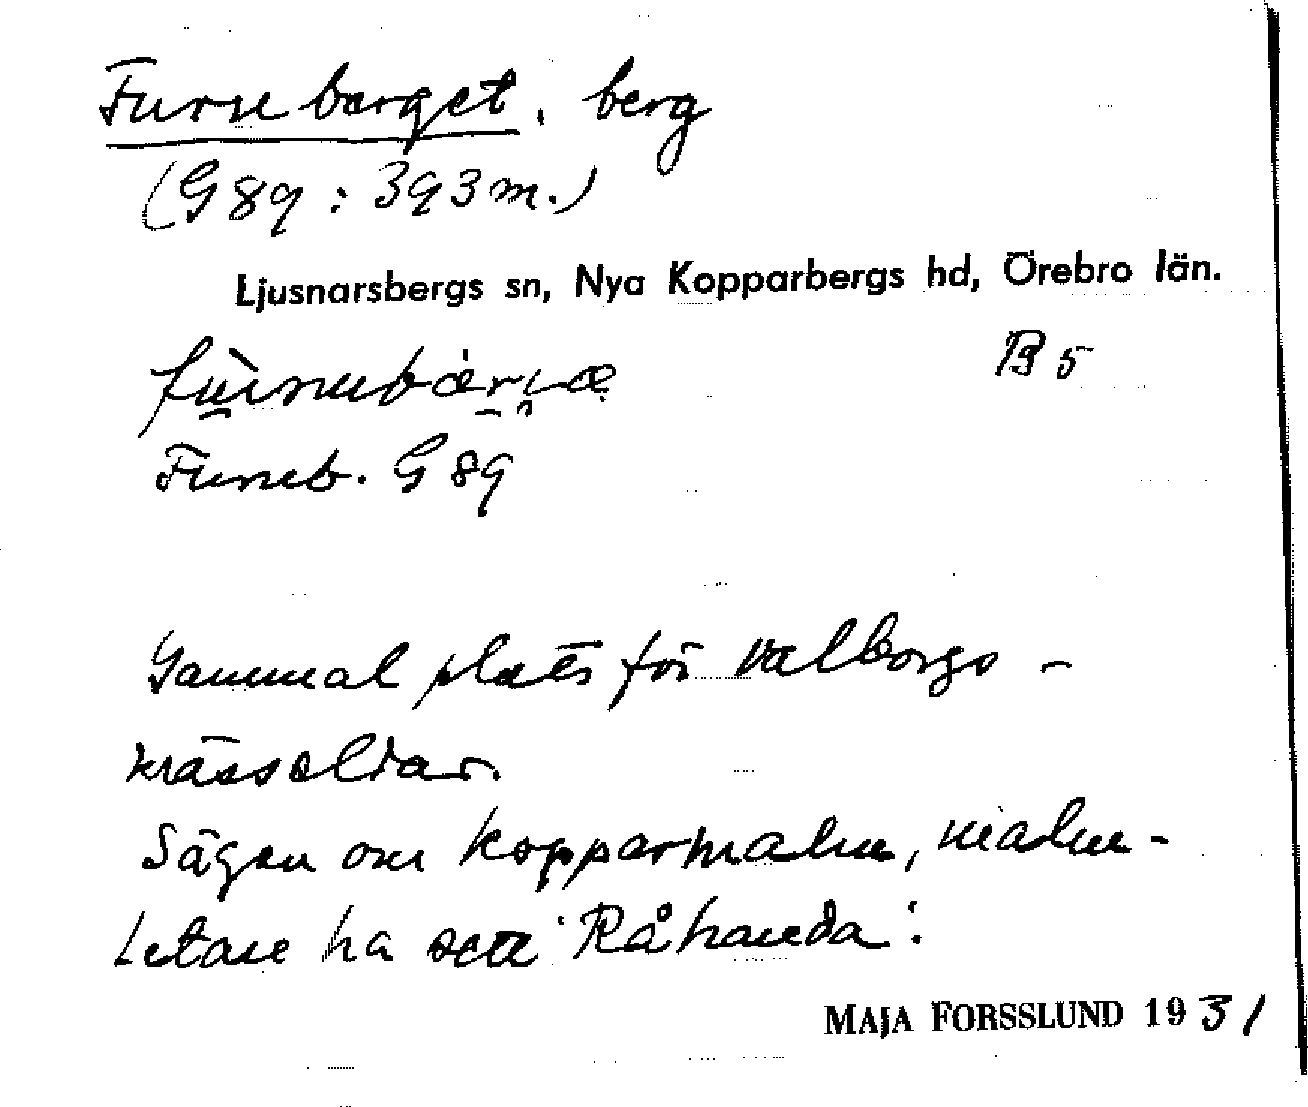 Furneberget, berg
(G 89 : 393 m.)
Ljusnarsbergs sn, Nya Kopparbergs hd, Örebro län.
B 5
Furneb. G 89
Gammal plats för valborgs-
mässeldar.
Sägen om kopparmalm, malm-
letare ha sett 'Råhanda'.
MAJA FORSSLUND 1931